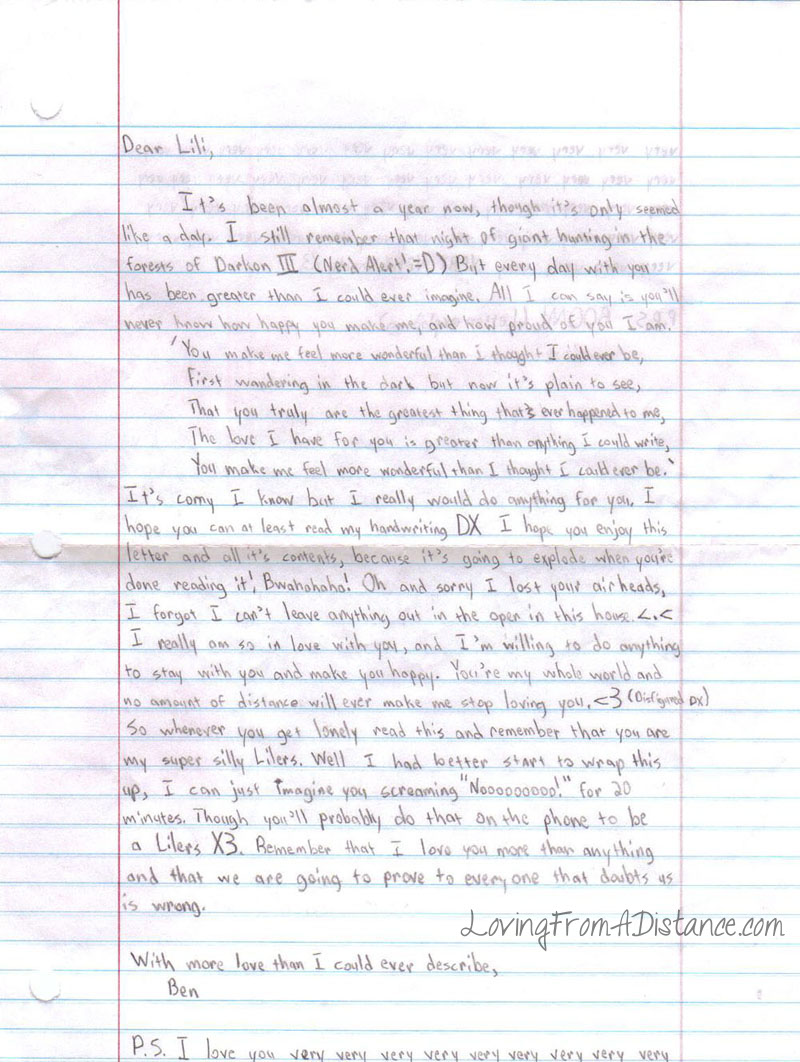 Dear Lili,
It's been almost a year now, though it's only seemed
like a day. I still remember that night of giant hunting in the
forests of Darkon III (Nerd Alert! =D) But every day with you
has been greater than I could ever imagine. All I can say is you'll
never know how happy you make me, and how proud of you I am.
'You make me feel more wonderful than I thought I could ever be,
First wandering in the dark but now it's plain to see,
That you truly are the greatest thing that's ever happened to me,
The love I have for you is greater than anything I could write,
You make me feel more wonderful than I thought I could ever be.'
It's corny I know but I really would do anything for you. I
hope you can at least read my handwriting DX I hope you enjoy this
letter and all it's contents, because it's going to explode when you're
done reading it! Bwahahaha! Oh and sorry I lost your airheads,
I forgot I can't leave anything out in the open in this house. <.<
I really am so in love with you, and I'm willing to do anything
to stay with you and make you happy. You're my whole world and
no amount of distance will ever make me stop loving you. <3 (Disfigured DX)
So whenever you get lonely read this and remember that you are
my super silly Lilers. Well I had better start to wrap this
up, I can just imagine you screaming "Nooooooooo!" for 20
minutes. Though you'll probably do that on the phone to be
a Lilers X3. Remember that I love you more than anything
and that we are going to prove to everyone that doubts us
is wrong.
LovingFromADistance.com
With more love than I could ever describe,
Ben
P.S. I love you very very very very very very very very very